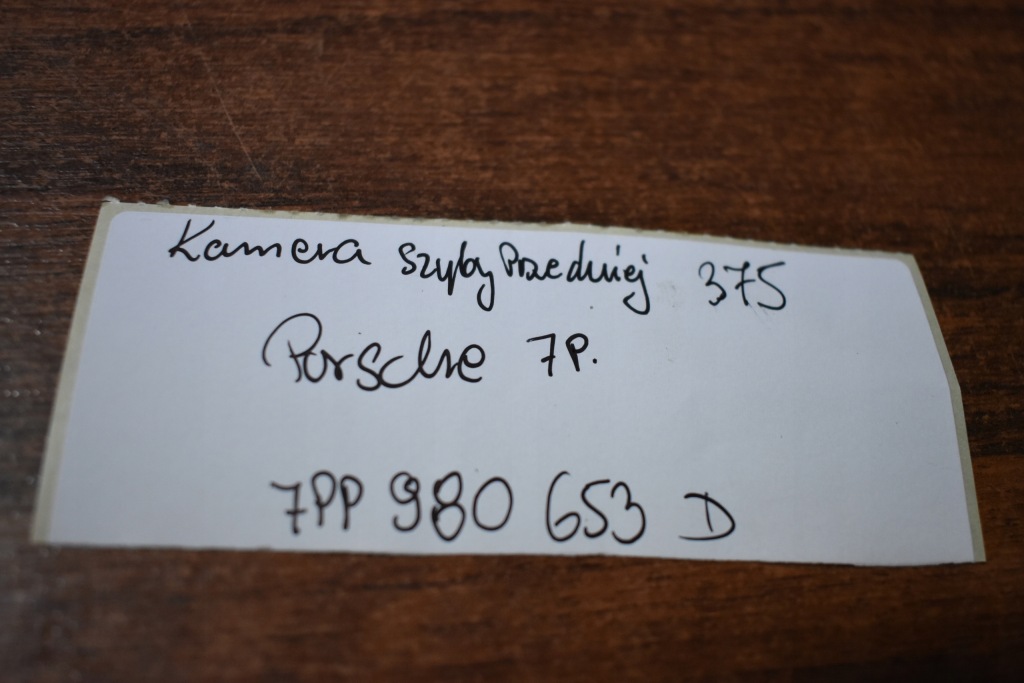 Kamera szyby Przedniej 375
Porsche 7P.
7PP 980 653 D